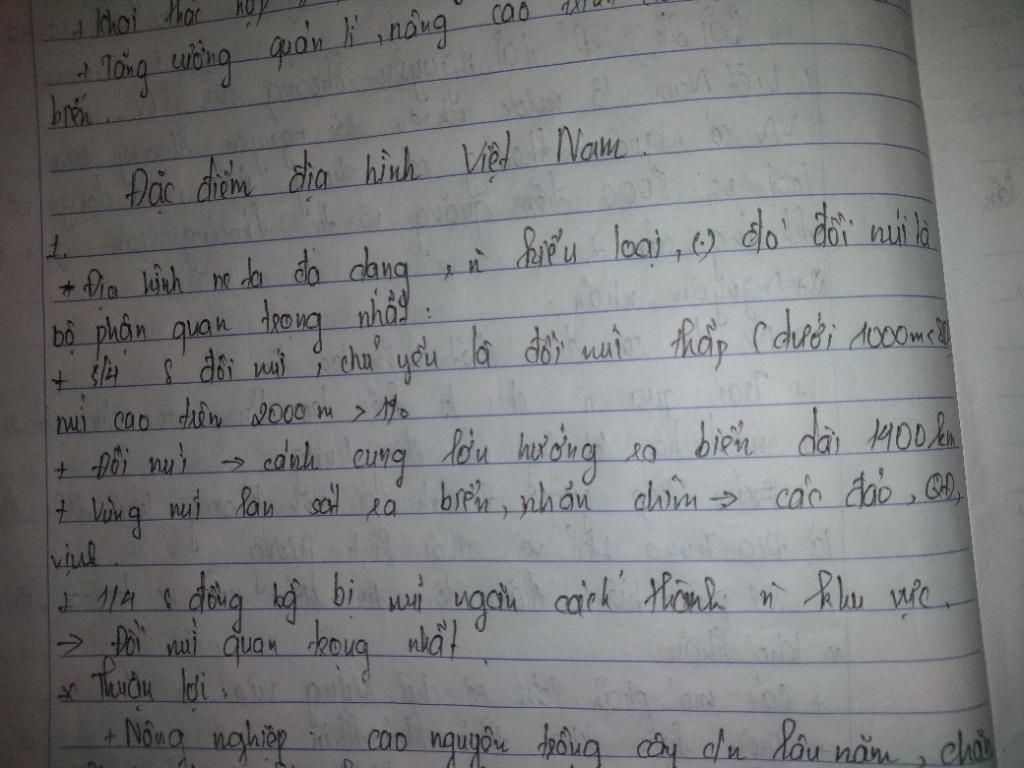 + Khai thác hợp
+ Tăng cường quản lí, nâng cao
biển.
Đặc điểm địa hình Việt Nam.
1.
* Địa hình nc ta đa dạng, n kiểu loại, (.) đó đồi núi là
bộ phận quan trọng nhất:
+ 3/4 S đồi núi, chủ yếu là đồi núi thấp (dưới 1000m
núi cao trên 2000 m > 1%
+ Đồi núi → cánh cung lớn hướng ra biển dài 1400 km
+ Vùng núi lan sát ra biển, nhấn chìm → các đảo, QĐ,
vịnh.
+ 1/4 S đồng bg bị núi ngăn cách thành n khu vực.
→ Đồi núi quan trọng nhất
* Thuận lợi:
+ Nông nghiệp: cao nguyên trồng cây c/n lâu năm, chăn